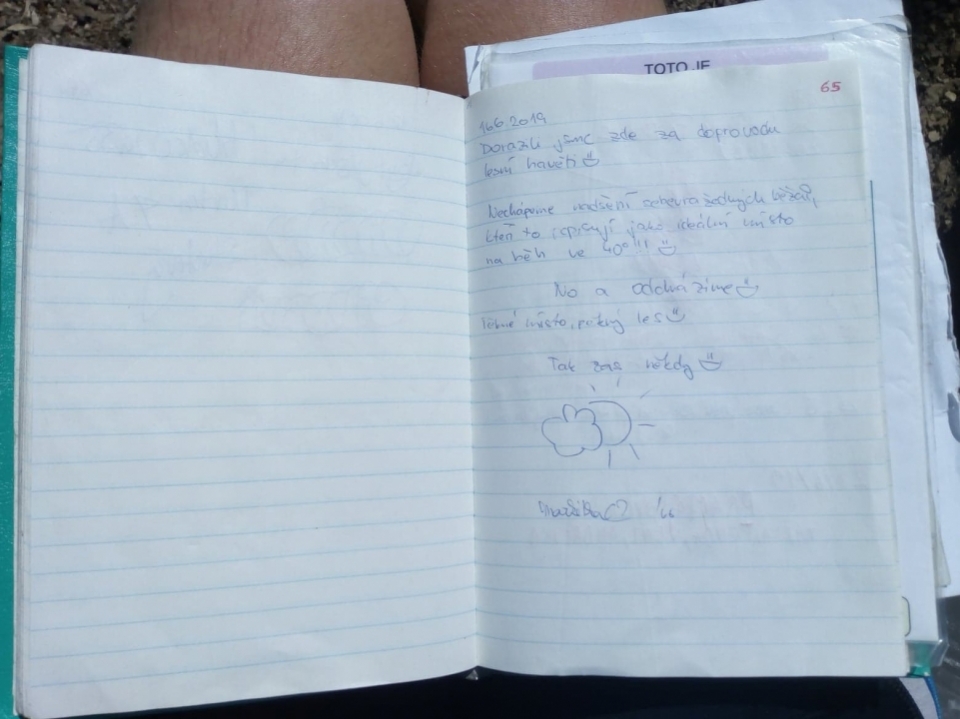 TOTO JE
65
16.6.2019
Dorazili jsme zde za doprovodu
lesní havěti
Nechápeme nadšení sebevražedných běžců,
kteří to popisují jako ideální místo
na běh ve 40° !!!
No a odcházíme
místo, pěkný les
Tak zas někdy